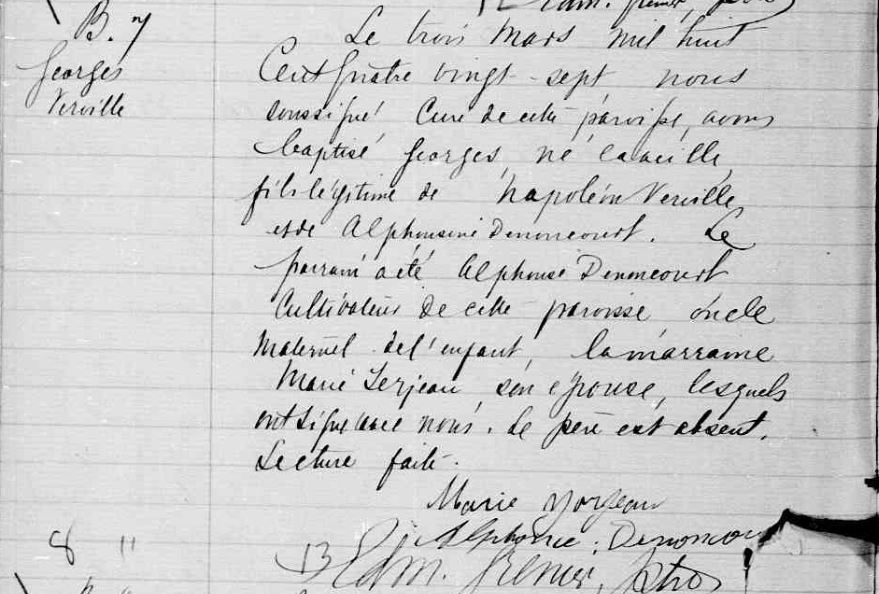 Edm. Grenier, Ptre
B. 7
Georges
Verville
Le trois Mars mil huit
Cent quatre vingt-sept nous
soussigné Curé de cette paroisse, avons
baptisé Georges, né la veille,
fils légitime de Napoléon Verville
et de Alphonsine Denoncourt. Le
parrain a été Alphonse Denoncourt
Cultivateur de cette paroisse oncle
Maternel de l'enfant, la marraine
Marie son épouse, lesquels
ont signé avec nous. Le père est absent.
Lecture faite.
Marie
Alphonse Denoncour
Edm. Grenier, Ptre
8 "